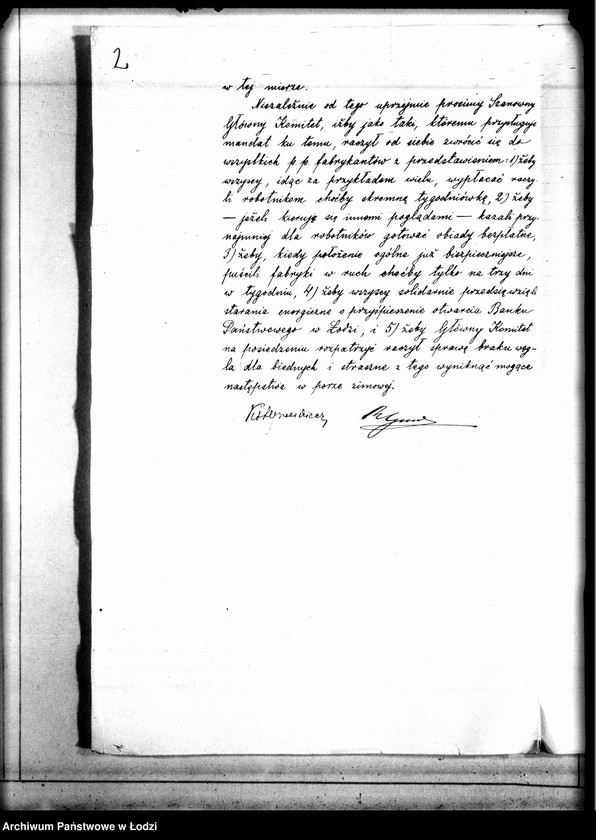 2
w tej mierze.
Niezależnie od tego uprzejmie prosimy Szanowny
Główny Komitet, iżby jako taki, któremu przysługuje
mandat ku temu, raczył od siebie zwrócić się do
wszystkich p.p. fabrykantów z przedstawieniem: 1) żeby
wszyscy, idąc za przykładem wielu, wypłacać raczy-
li robotnikom choćby skromną tygodniówkę, 2) żeby
— jeżeli kierują się innemi poglądami — kazali przy-
najmniej dla robotników gotować obiady bezpłatne,
3) żeby, kiedy położenie ogólne już bezpieczniejsze,
puścili fabryki w ruch choćby tylko na trzy dni
w tygodniu, 4) żeby wszyscy solidarnie przedsięwzięli
starania energiczne o przyśpieszenie otwarcia Banku
Państwowego w Łodzi, i 5) żeby Główny Komitet
na posiedzeniu rozpatrzyć raczył sprawę braku węg-
la dla biednych i straszne z tego wyniknąć mogące
następstwa w porze zimowej.
Archiwum Państwowe w Łodzi